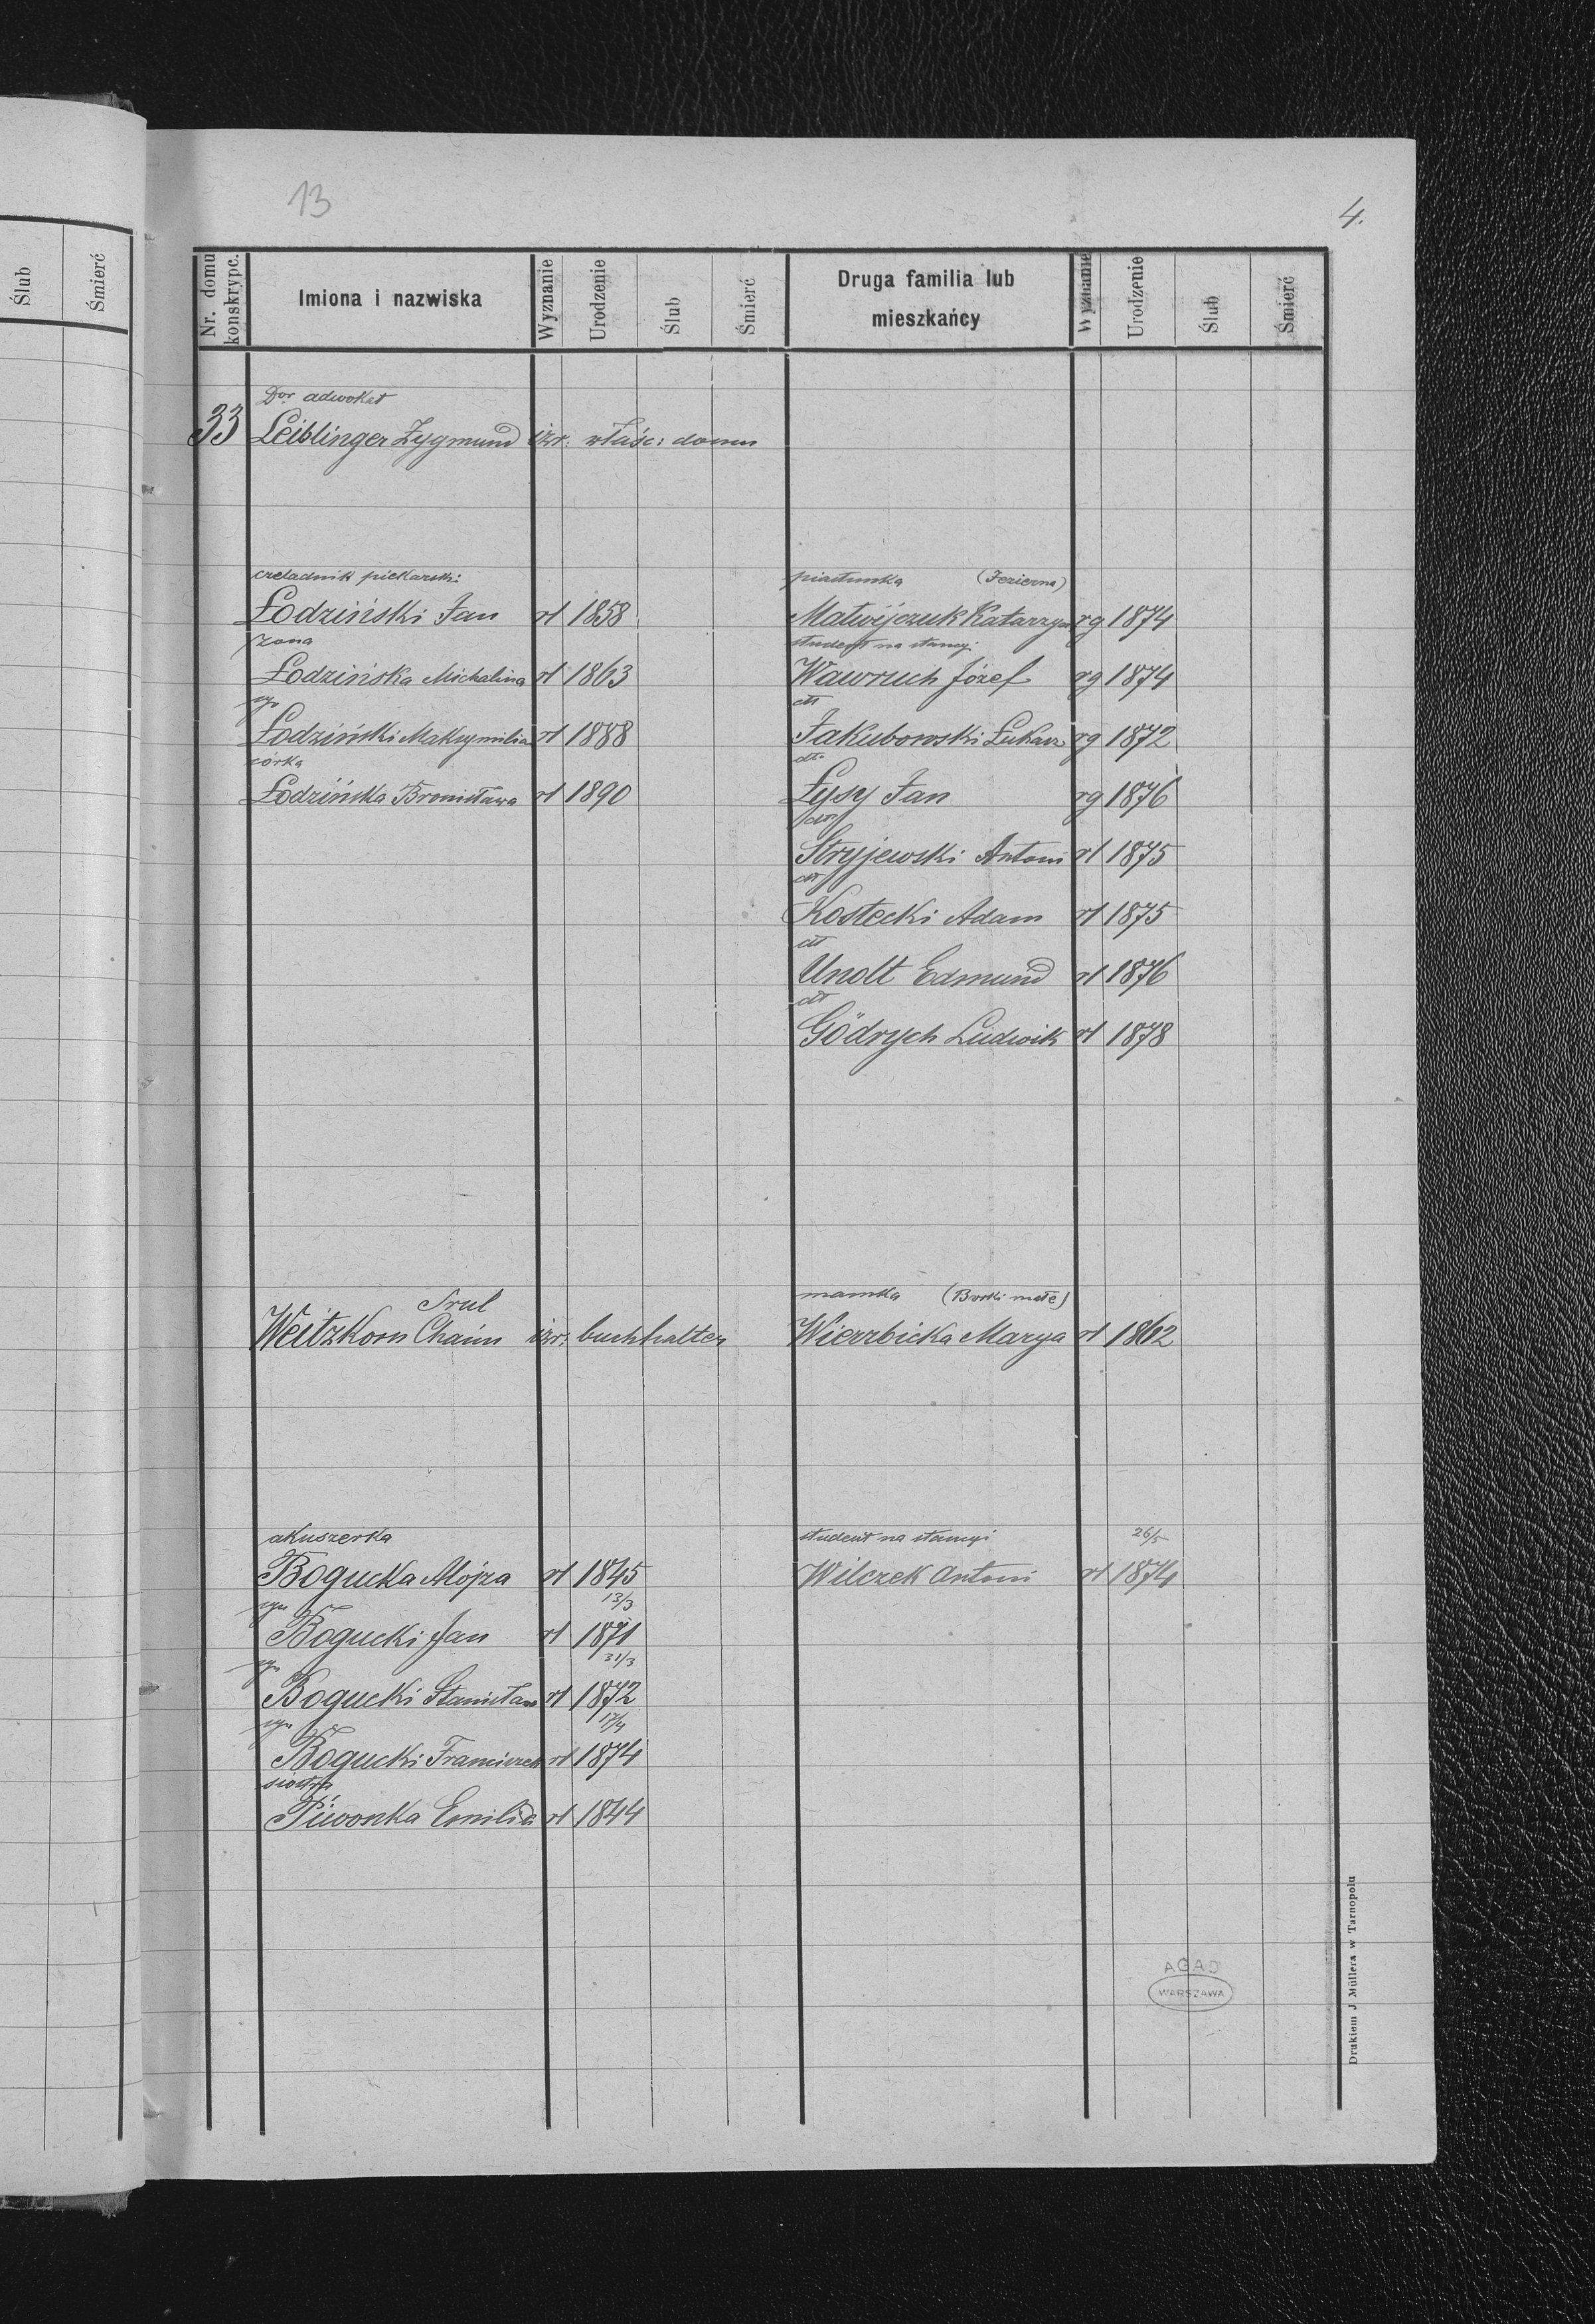 Ślub
Śmierć
13
4.
Nr. domu konskrypc.
Imiona i nazwiska
Wyznanie
Urodzenie
Ślub
Śmierć
Druga familia lub mieszkańcy
Wyznanie
Urodzenie
Ślub
Śmierć
Dor adwokat
33 Leiblinger Zygmund izr. właśc: domu
czeladnik piekarski
Łodziński Jan rł 1858
żona
Łodzińska Michalina rł 1863
syn
Łodziński Maksymilian rł 1888
córka
Łodzińska Bronisława rł 1890
piastunka (Jezierna)
Matwijczuk Katarzyna rg 1874
student na stancyi
Wawruch Józef rg 1874
dtt
Jakubowski Łukasz rg 1872
dtt
Łysy Jan rg 1876
dtt
Stryjewski Antoni rł 1875
dtt
Kostecki Adam rł 1875
dtt
Unolt Edmund rł 1876
dtt
Gödrych Ludwik rł 1878
Srul
Weitzkorn Chaim izr. buchhalter
mamka (Borki małe)
Wierzbicka Marya rł 1862
akuszerka
Bogucka Alojza rł 1845
syn 13/3
Bogucki Jan rł 1871
syn 31/3
Bogucki Stanisław rł 1872
syn 17/4
Bogucki Franciszek rł 1874
siostra
Piwonka Emilia rł 1844
student na stancyi 26/5
Wilczek Antoni rł 1874
AGAD
WARSZAWA
Drukiem J Müllera w Tarnopolu